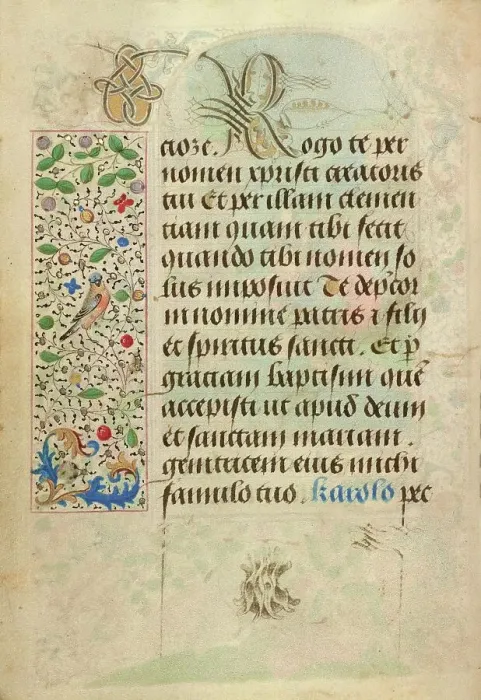 ctore. Rogo te per
nomen xpristi creatoris
tui Et per illam clemen
tiam quam tibi fecit
quando tibi nomen so
lus imposuit Te dep̄cor
in nomine patris ⁊ filij
et spiritus sancti. Et p̄
gratiam baptismi quē
accepisti ut apud deum
et sanctam mariam.
genitricem eius michi
famulo tuo. karolo pec